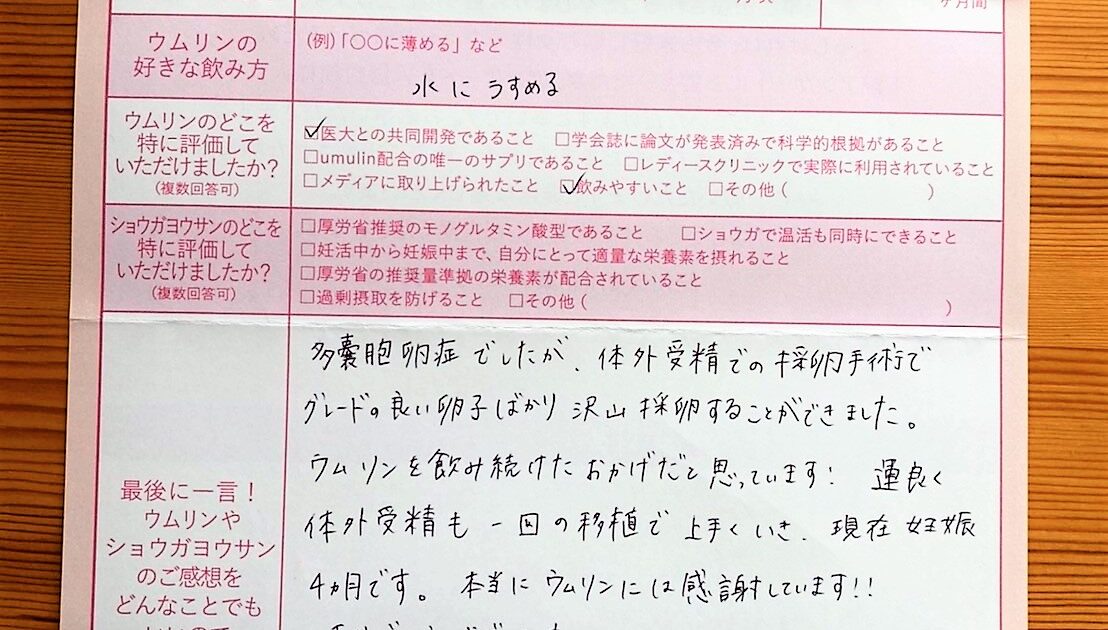 ヶ月間
ウムリンの
好きな飲み方
(例)「〇〇に薄める」など
水にうすめる
ウムリンのどこを
特に評価して
いただけましたか？
(複数回答可)
☑医大との共同開発であること □学会誌に論文が発表済みで科学的根拠があること
□umulin配合の唯一のサプリであること □レディースクリニックで実際に利用されていること
□メディアに取り上げられたこと ☑飲みやすいこと □その他( )
ショウガヨウサンのどこを
特に評価して
いただけましたか？
(複数回答可)
□厚労省推奨のモノグルタミン酸型であること □ショウガで温活も同時にできること
□妊活中から妊娠中まで、自分にとって適量な栄養素を摂れること
□厚労省の推奨量準拠の栄養素が配合されていること
□過剰摂取を防げること □その他( )
最後に一言！
ウムリンや
ショウガヨウサン
のご感想を
どんなことでも
多嚢胞卵症でしたが、体外受精での採卵手術で
グレードの良い卵子ばかり沢山採卵することができました。
ウムリンを飲み続けたおかげだと思っています！ 運良く
体外受精も一回の移植で上手くいき、現在妊娠
4ヵ月です。 本当にウムリンには感謝しています!!